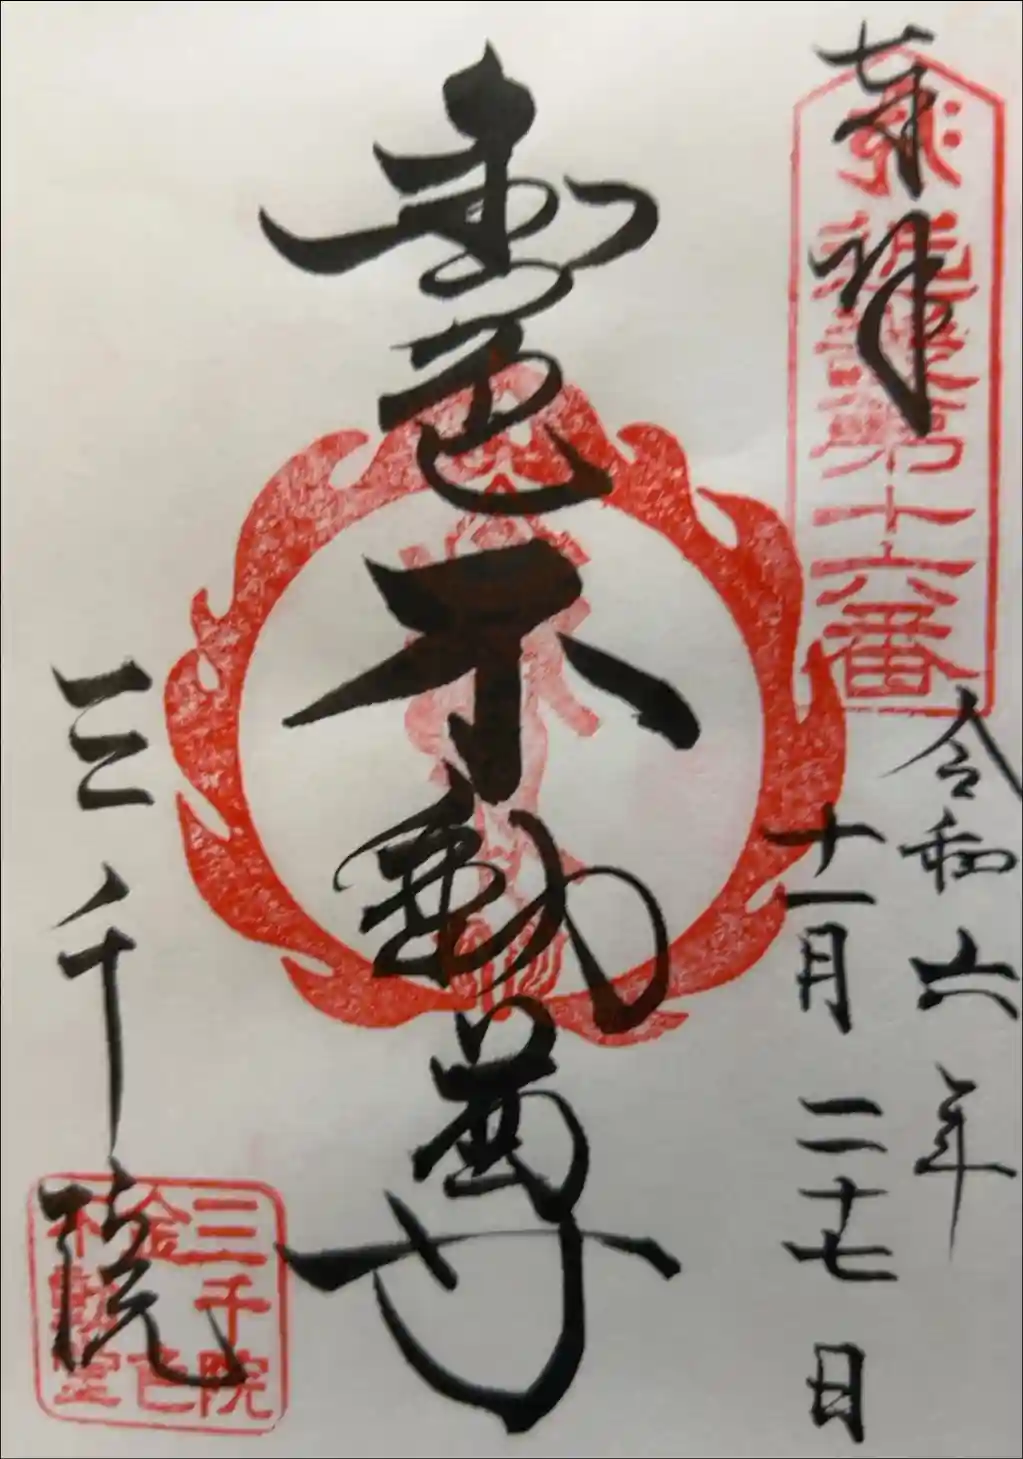 奉拝
第十六番
令和六年
十一月二十七日
金色不動尊
三千院
三千院
金色
不動堂